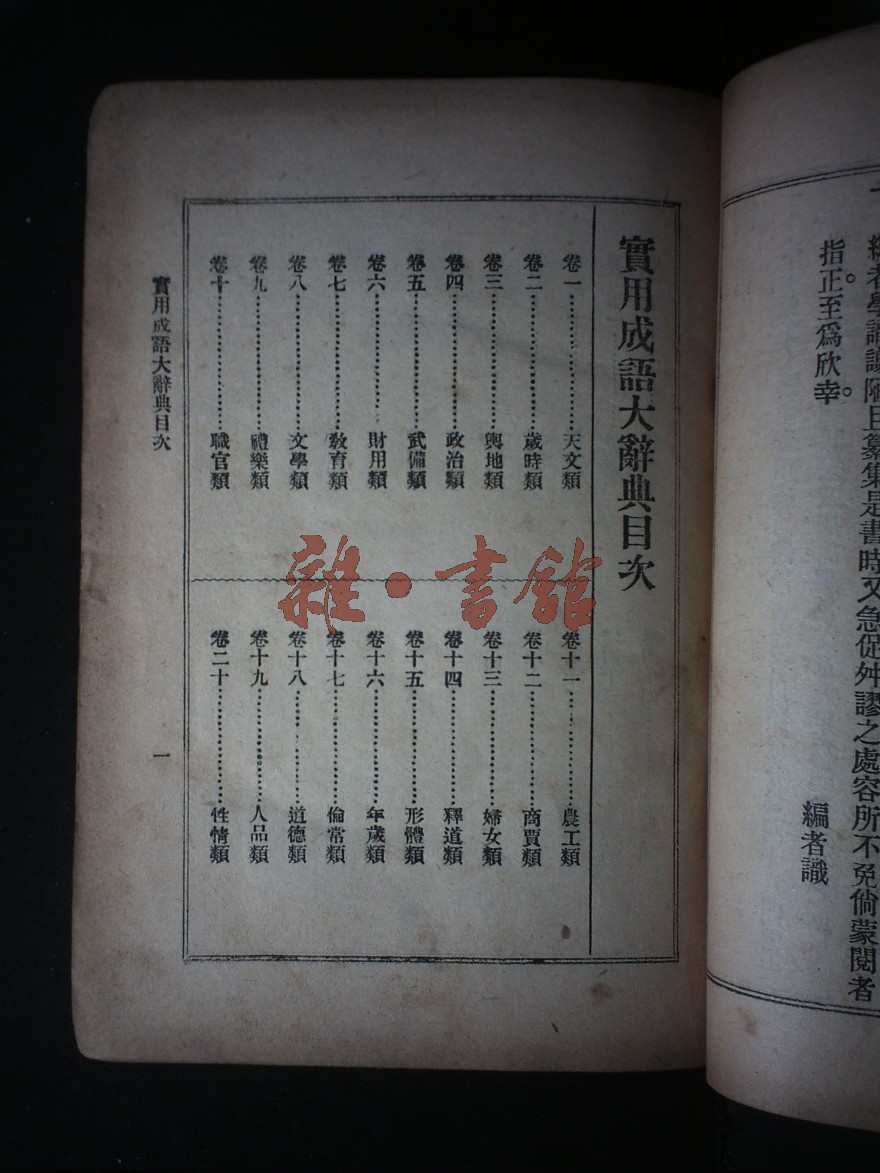 編者學識譾陋且纂集是書時又急促舛謬之處容所不免倘蒙閱者
指正至爲欣幸。
編者識
實用成語大辭典目次
卷一…………………天文類
卷二…………………歲時類
卷三…………………輿地類
卷四…………………政治類
卷五…………………武備類
卷六…………………財用類
卷七…………………敎育類
卷八…………………文學類
卷九…………………禮樂類
卷十…………………職官類
卷十一………………農工類
卷十二………………商賈類
卷十三………………婦女類
卷十四………………釋道類
卷十五………………形體類
卷十六………………年歲類
卷十七………………倫常類
卷十八………………道德類
卷十九………………人品類
卷二十………………性情類
實用成語大辭典目次
一
雜·書館